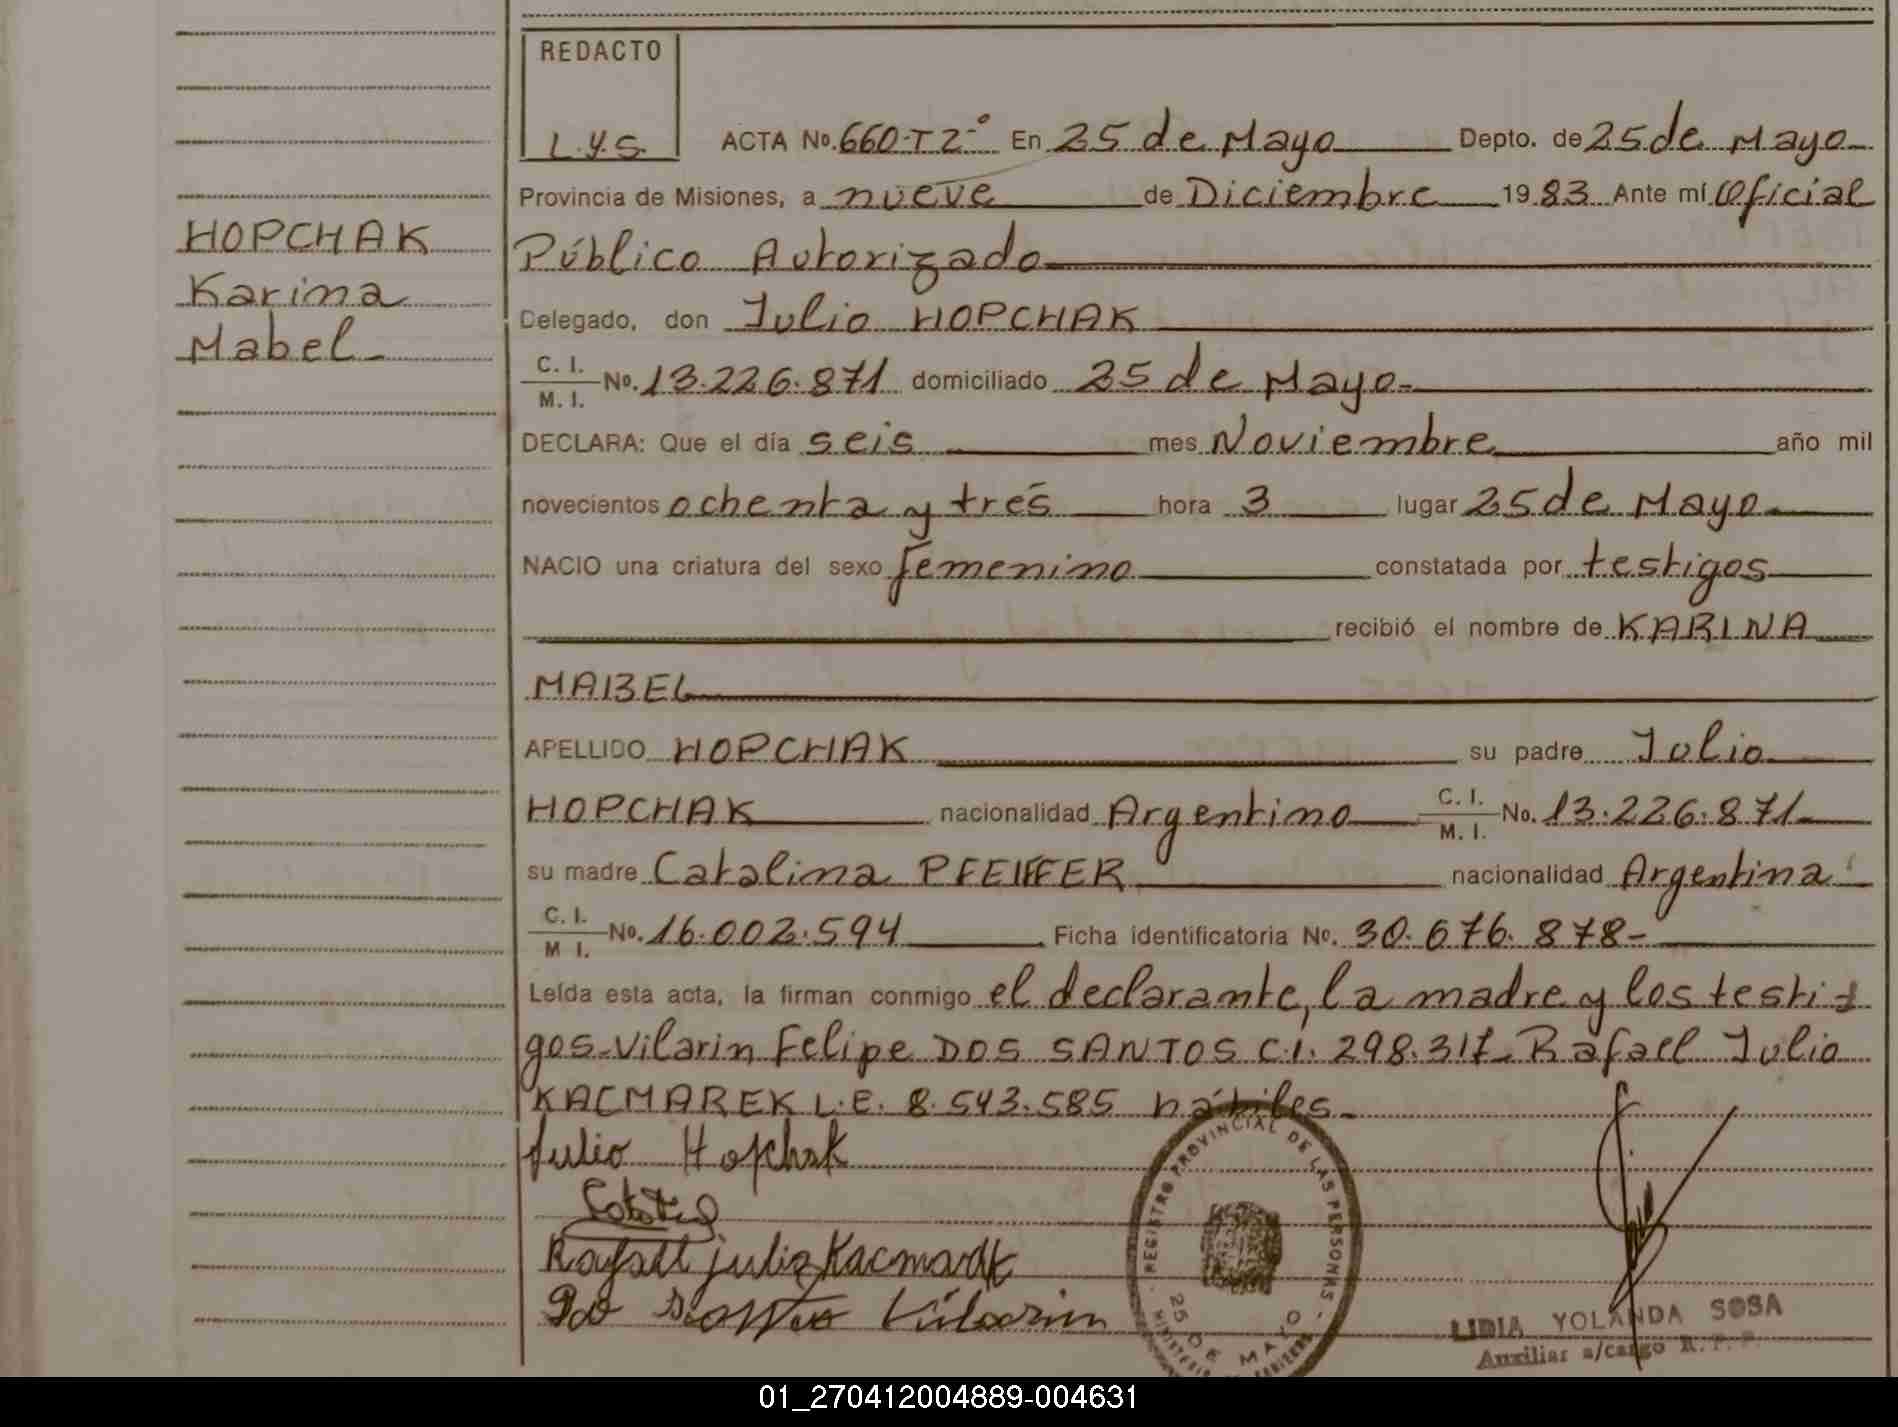 REDACTO
L.Y.S.
ACTA No. 660-T2-º En 25 de Mayo Depto. de 25 de Mayo
Provincia de Misiones, a nueve de Diciembre 1983 Ante mí Oficial
HOPCHAK
Karina
Mabel
Público Autorizado
Delegado, don Julio HOPCHAK
C. I.
M. I.
No. 13.226.871 domiciliado 25 de Mayo
DECLARA: Que el día seis mes Noviembre año mil
novecientos ochenta y tres hora 3 lugar 25 de Mayo
NACIO una criatura del sexo femenino constatada por testigos
recibió el nombre de KARINA
MABEL
APELLIDO HOPCHAK su padre Julio
HOPCHAK nacionalidad Argentino C. I. M. I. No. 13.226.871
su madre Catalina PFEIFFER nacionalidad Argentina
C. I. M I. No. 16.002.594 Ficha identificatoria No. 30.676.878-
Leída esta acta, la firman conmigo el declarante, la madre y los testi-
gos-Vilarin Felipe DOS SANTOS C.I. 298.317- Rafael Julio
KACMAREK L.E. 8.543.585 hábiles.
Julio Hopchak
Rafael julio Kacmarek
Vilarin
REGISTRO PROVINCIAL DE LAS PERSONAS
25 DE MAYO
LIDIA YOLANDA SOSA
Auxiliar a/cargo R.P.P.
01_270412004889-004631